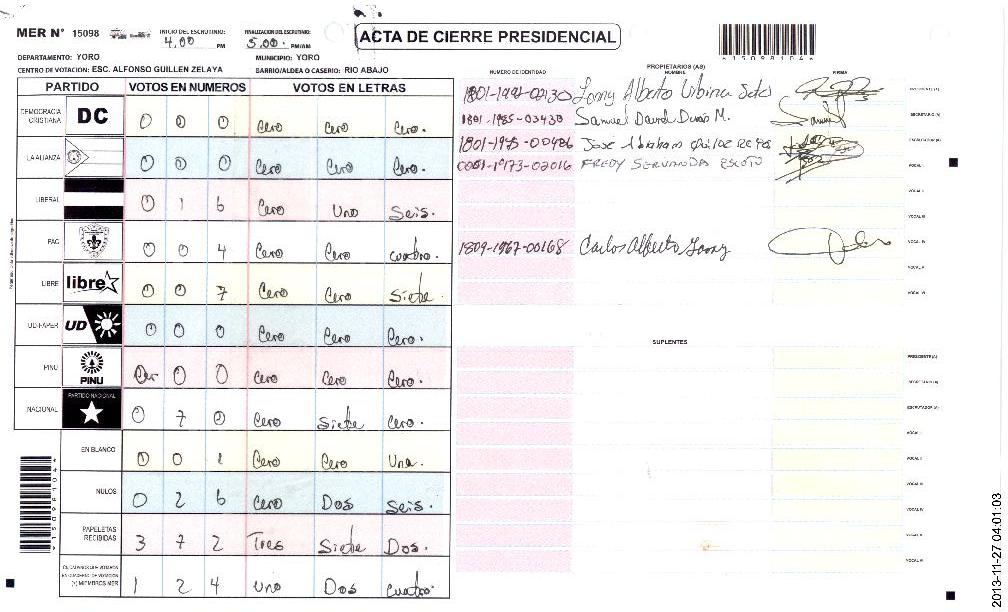 MER N° 15098
INICIO DEL ESCRUTINIO: 4.00 PM
FINALIZACION DEL ESCRUTINIO: 5.00. PM/AM
ACTA DE CIERRE PRESIDENCIAL
DEPARTAMENTO: YORO
MUNICIPIO: YORO
CENTRO DE VOTACION: ESC. ALFONSO GUILLEN ZELAYA
BARRIO/ALDEA O CASERIO: RIO ABAJO
PARTIDO VOTOS EN NUMEROS VOTOS EN LETRAS
DEMOCRACIA CRISTIANA DC 0 0 0 Cero Cero Cero.
LA ALIANZA 0 0 0 Cero Cero Cero.
LIBERAL 0 1 6 Cero Uno Seis.
PAC 0 0 4 Cero Cero cuatro.
LIBRE libre 0 0 7 Cero Cero Siete.
UD-FAPER UD 0 0 0 Cero Cero Cero.
PINU PINU Cer 0 0 Cero Cero Cero.
NACIONAL PARTIDO NACIONAL 0 7 0 Cero Siete Cero.
EN BLANCO 0 0 1 Cero Cero Una.
NULOS 0 2 6 Cero Dos Seis.
PAPELETAS RECIBIDAS 3 7 2 Tres Siete Dos.
CIUDADANOS QUE VOTARON
EN CUADERNO DE VOTACION
(+) MIEMBROS MER 1 2 4 Uno Dos Cuatro.
*15098104*
PROPIETARIOS (AS)
NUMERO DE IDENTIDAD NOMBRE FIRMA
Alberto PRESIDENTE (A)
1801-1985-03430 Samuel David M. SECRETARIO (A)
1801-1975-00486 Jose Abraham ESCRUTADOR (A)
FREDY SERVANDA ESCOTO VOCAL I
VOCAL II
VOCAL III
1809-1967-00168 Carlos Alberto VOCAL IV
VOCAL V
VOCAL VI
SUPLENTES
PRESIDENTE (A)
SECRETARIO (A)
ESCRUTADOR (A)
VOCAL I
VOCAL II
VOCAL III
VOCAL IV
VOCAL V
VOCAL VI
2013-11-27 04:01:03